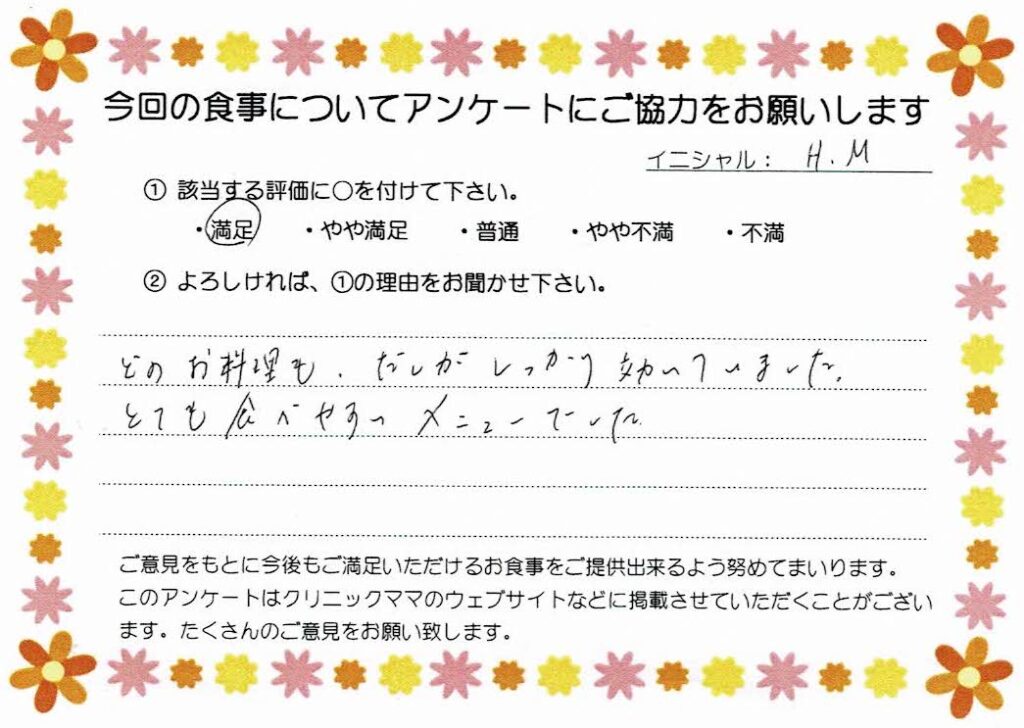 今回の食事についてアンケートにご協力をお願いします
イニシャル： H.M
① 該当する評価に〇を付けて下さい。
・満足 ・やや満足 ・普通 ・やや不満 ・不満
② よろしければ、①の理由をお聞かせ下さい。
どのお料理も、だしがしっかり効いていました。
とても食べやすいメニューでした
ご意見をもとに今後もご満足いただけるお食事をご提供出来るよう努めてまいります。
このアンケートはクリニックママのウェブサイトなどに掲載させていただくことがござい
ます。たくさんのご意見をお願い致します。